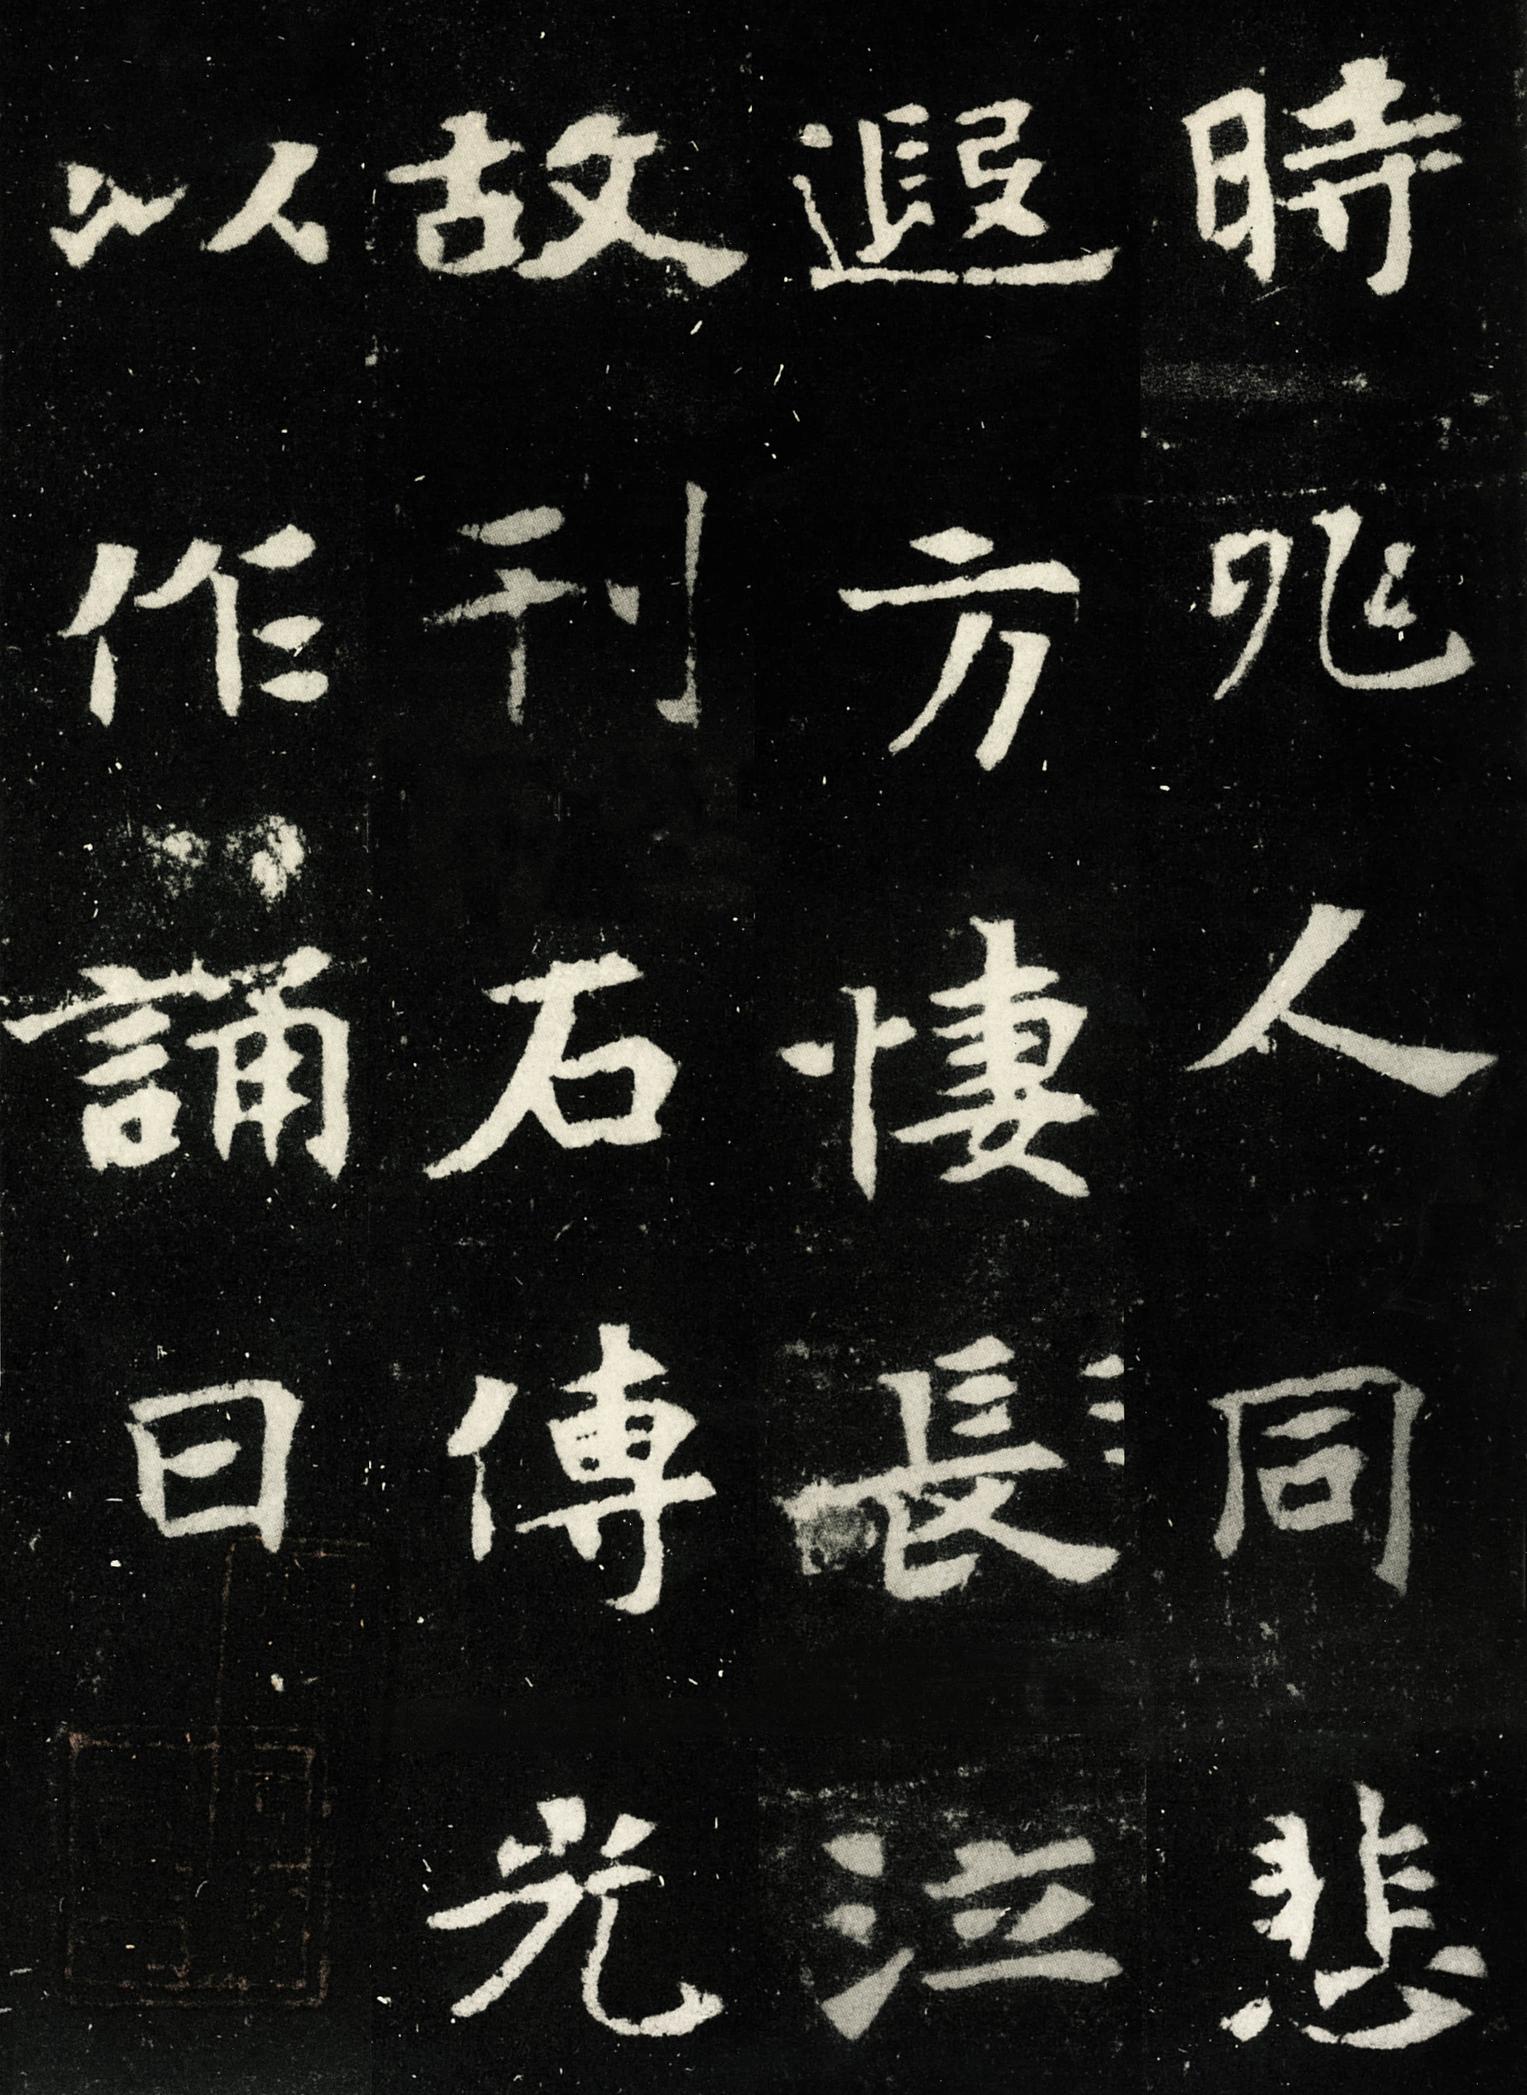 時兆人同悲
遐方悽長泣
故刊石傳光
以作誦曰